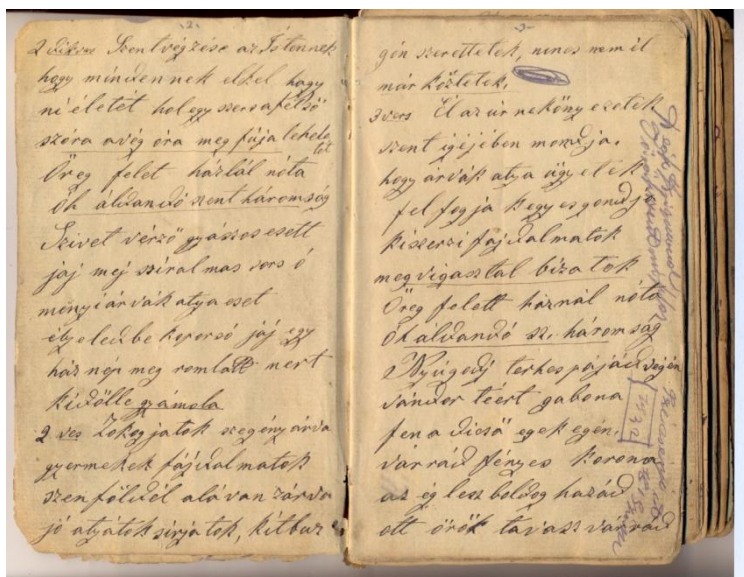 2.
2 dik vers Szent végzése az Istennek
hogy mindennek el kel hagy
ni életét hol egy szersa felső
szóra a vég óra meg fúja lehele
tét
Öreg felet házlál nóta
Óh áldandó szent háromság
Szivet vérző gyászos esett
jaj mej sziralmas sors ó
menyi árvák atya eset
koporsó jáj egy
ház nép meg romlatt mert
kidölle gyámola
2 ves Zokogjatok szegény árva
gyermekek fájdalmatok
szen földél alá van zárva
jó atyátok sirjatok, kit buz
3
gón szerettetek, nincs nem él
már köztetek,
3 vers Él az úr ne köny ezetek
szent igéjében mondja.
hogy árvák atya ügyelek
fel fogja kegyes gondj
kiszerzi fájdalmatok
meg vigasztal biza tok
Öreg felett háznál nóta
Óh aldandó sz. háromság
Nyúgodj terhes pájád végén
vándor teért gabona
fen a dicső egek egén,
vár rád fényes korona
az ég lesz boldog hazád
ott örök tavasz vár rád
1932